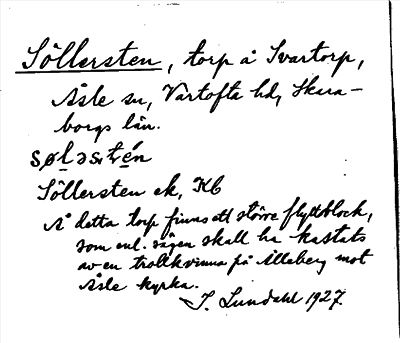 Söllersten, torp å Svartorp,
Åsle sn, Vartofta hd, Skara-
borgs län.
sølǝstén
Söllersten ek, Kb
Å detta torp finns ett större flyttblock,
som enl. sägen skall ha kastats
av en trollkvinna på Ålleberg mot
Åsle kyrka.
I. Lundahl 1927.